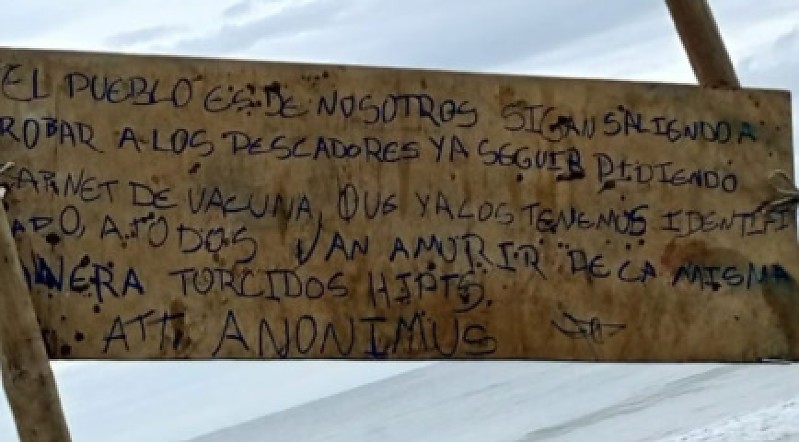 EL PUEBLO ES DE NOSOTROS SIGAN SALIENDO A
ROBAR A LOS PESCADORES Y A SEGUIR PIDIENDO
CARNET DE VACUNA, QUE YA LOS TENEMOS IDENTIFI
ADO, A TODOS VAN AMURIR DE LA MISMA
ANERA TORCIDOS HIPTS.
ATT, ANONIMUS